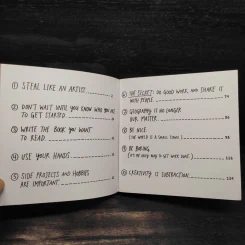 ① STEAL LIKE AN ARTIST.
② DON'T WAIT UNTIL YOU KNOW WHO YOU ARE
TO GET STARTED.
③ WRITE THE BOOK YOU WANT
TO READ.
④ USE YOUR HANDS.
⑤ SIDE PROJECTS AND HOBBIES
ARE IMPORTANT.
⑥ THE SECRET: DO GOOD WORK AND SHARE IT
WITH PEOPLE.
⑦ GEOGRAPHY IS NO LONGER
OUR MASTER.
⑧ BE NICE.
(THE WORLD IS A SMALL TOWN.)
⑨ BE BORING.
(IT'S THE ONLY WAY TO GET WORK DONE.)
⑩ CREATIVITY IS SUBTRACTION.